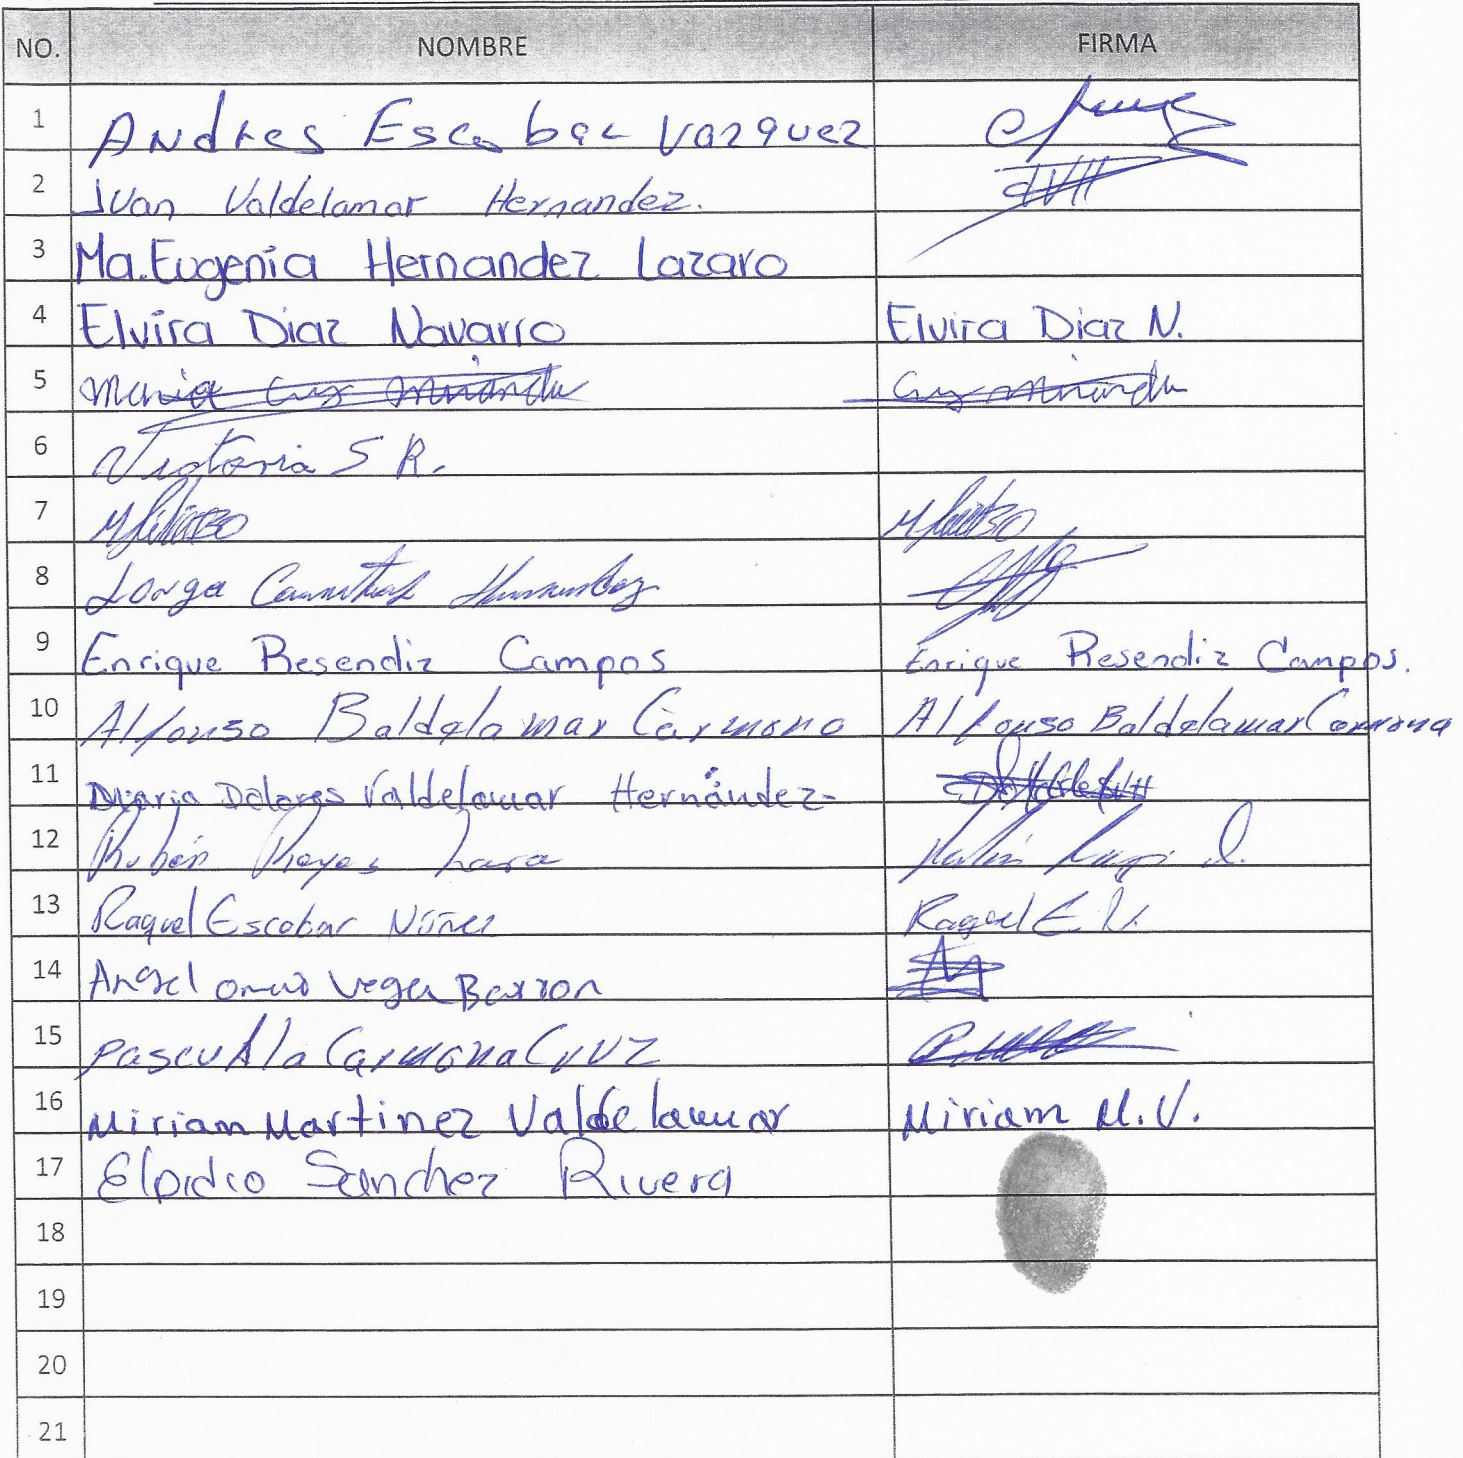 NO. NOMBRE FIRMA
1 Andres Escobar Vazquez
2 Juan Valdelamar Hernandez. JVH
3 Ma. Eugenia Hernandez Lazaro
4 Elvira Diaz Navarro Elvira Diaz N.
5 Maria Cruz Miranda Cruz Miranda
6 Victoria S R.
7
8 Jorge
9 Enrique Resendiz Campos Enrique Resendiz Campos.
10 Alfonso Baldelamar Carmona Alfonso Baldelamar Carmona
11 Maria Dolores Valdelamar Hernández
12 Rubén Reyes Lara
13 Raquel Escobar Núñez Raquel E N.
14 Angel Omar Vega Barron
15 pascuAla Carmona Cruz
16 Miriam Martinez Valdelamar Miriam M.V.
17 Elpidio Sanchez Rivera
18
19
20
21